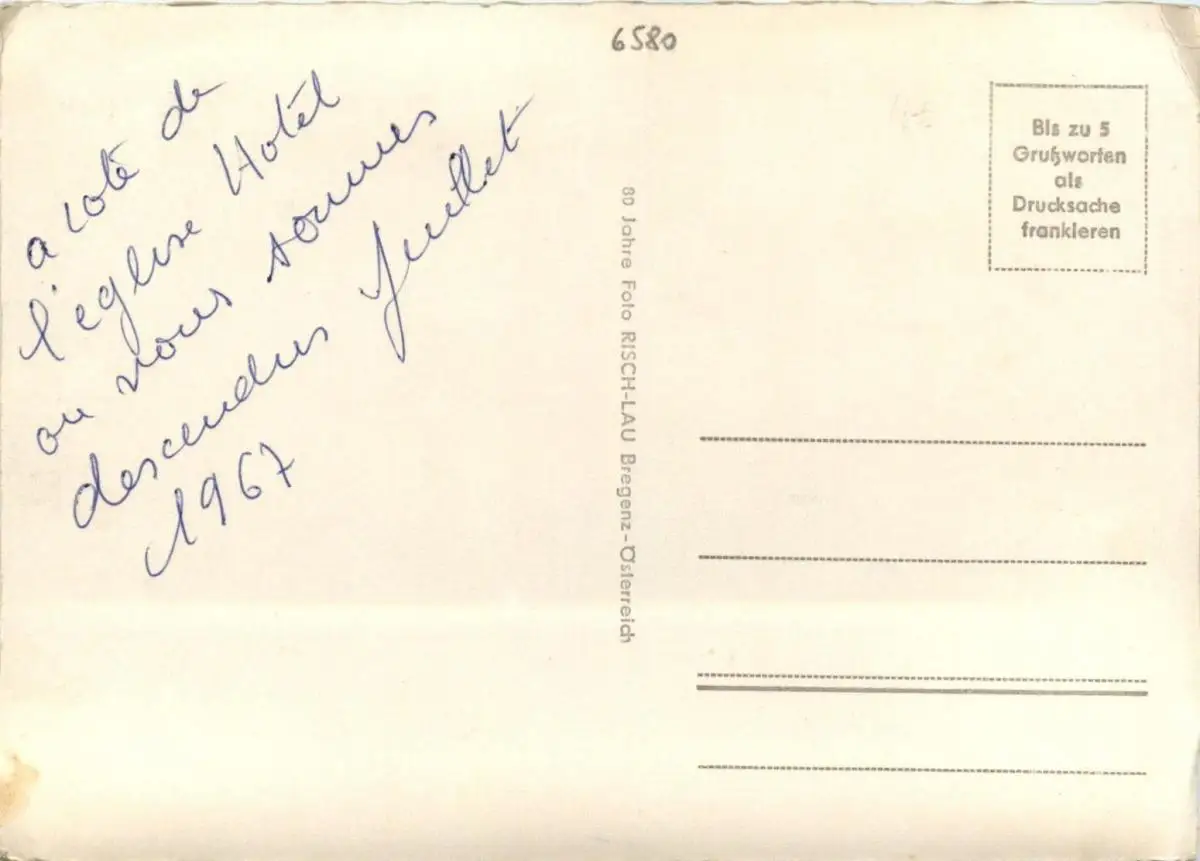 6580
a coté de
l'eglise Hotel
ou nous sommes
descendus Juillet
1967
80 Jahre Foto RISCH-LAU Bregenz-Österreich
Bis zu 5
Grußworten
als
Drucksache
frankieren